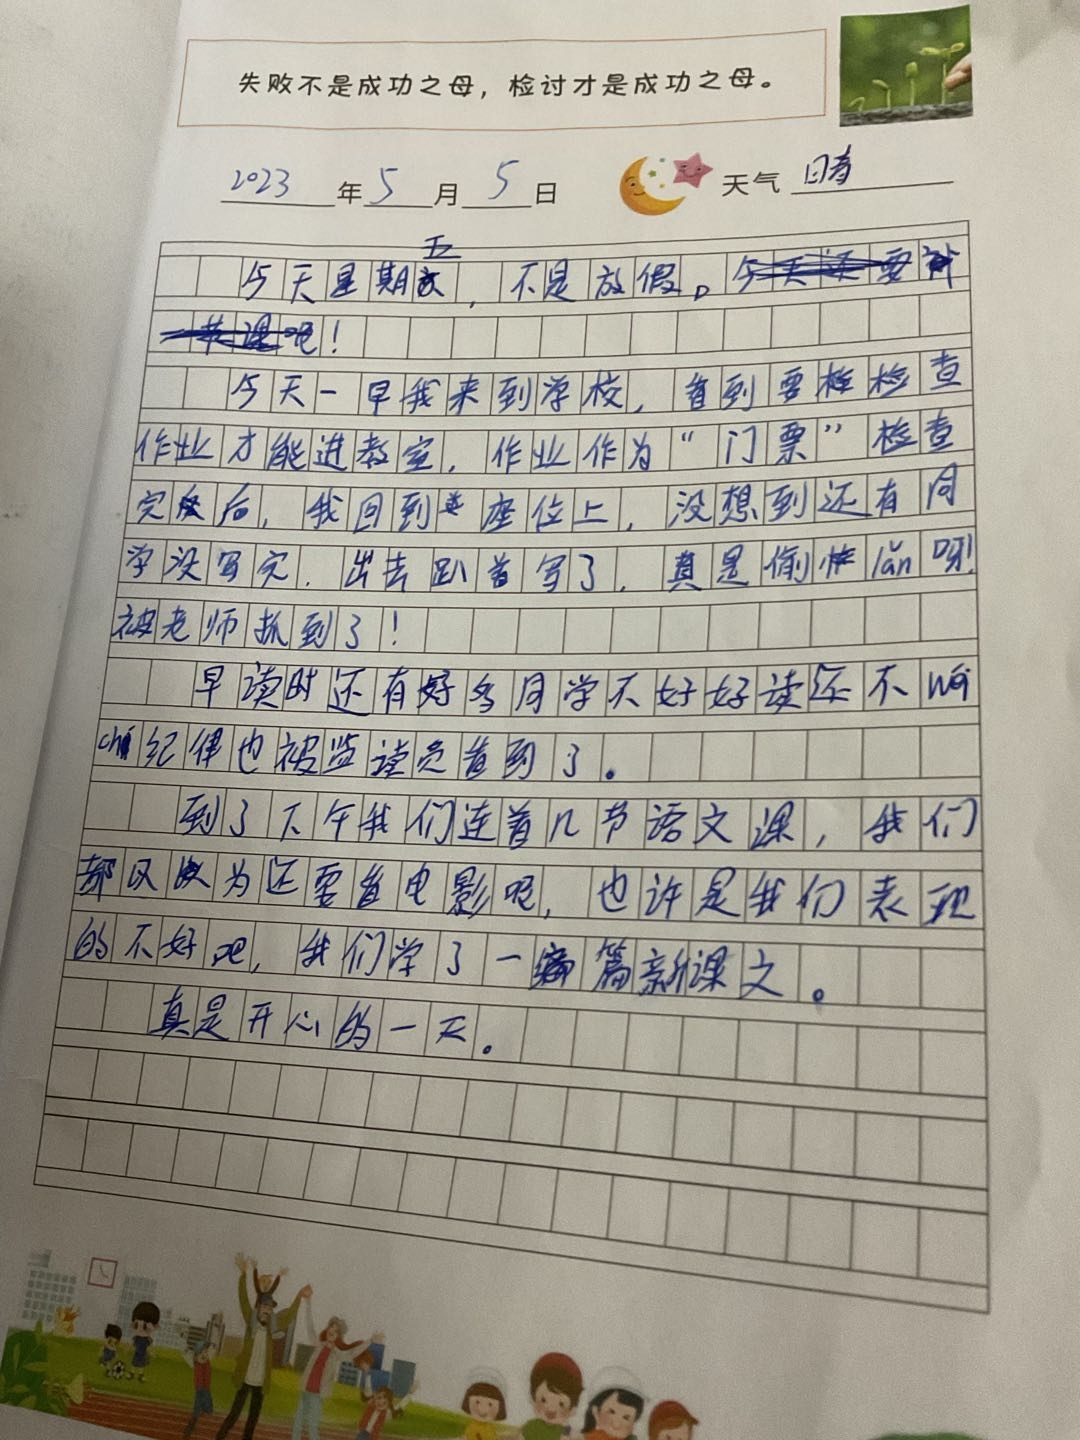 失败不是成功之母，检讨才是成功之母。
2023年5月5日 天气 晴
五
今天星期，不是放假。
吧！
今天一早我来到学校，看到要检检查
作业才能进教室，作业作为“门票”检查
完后，我回到座位上，没想到还有同
学没写完，出去趴着写了，真是偷lǎn呀！
被老师抓到了！
早读时还有好多同学不好好读还不wéi
chí纪律也被监读员看到了。
到了下午我们连着几节语文课，我们
都以为还要看电影呢，也许是我们表现
的不好吧，我们学了一篇新课文。
真是开心的一天。